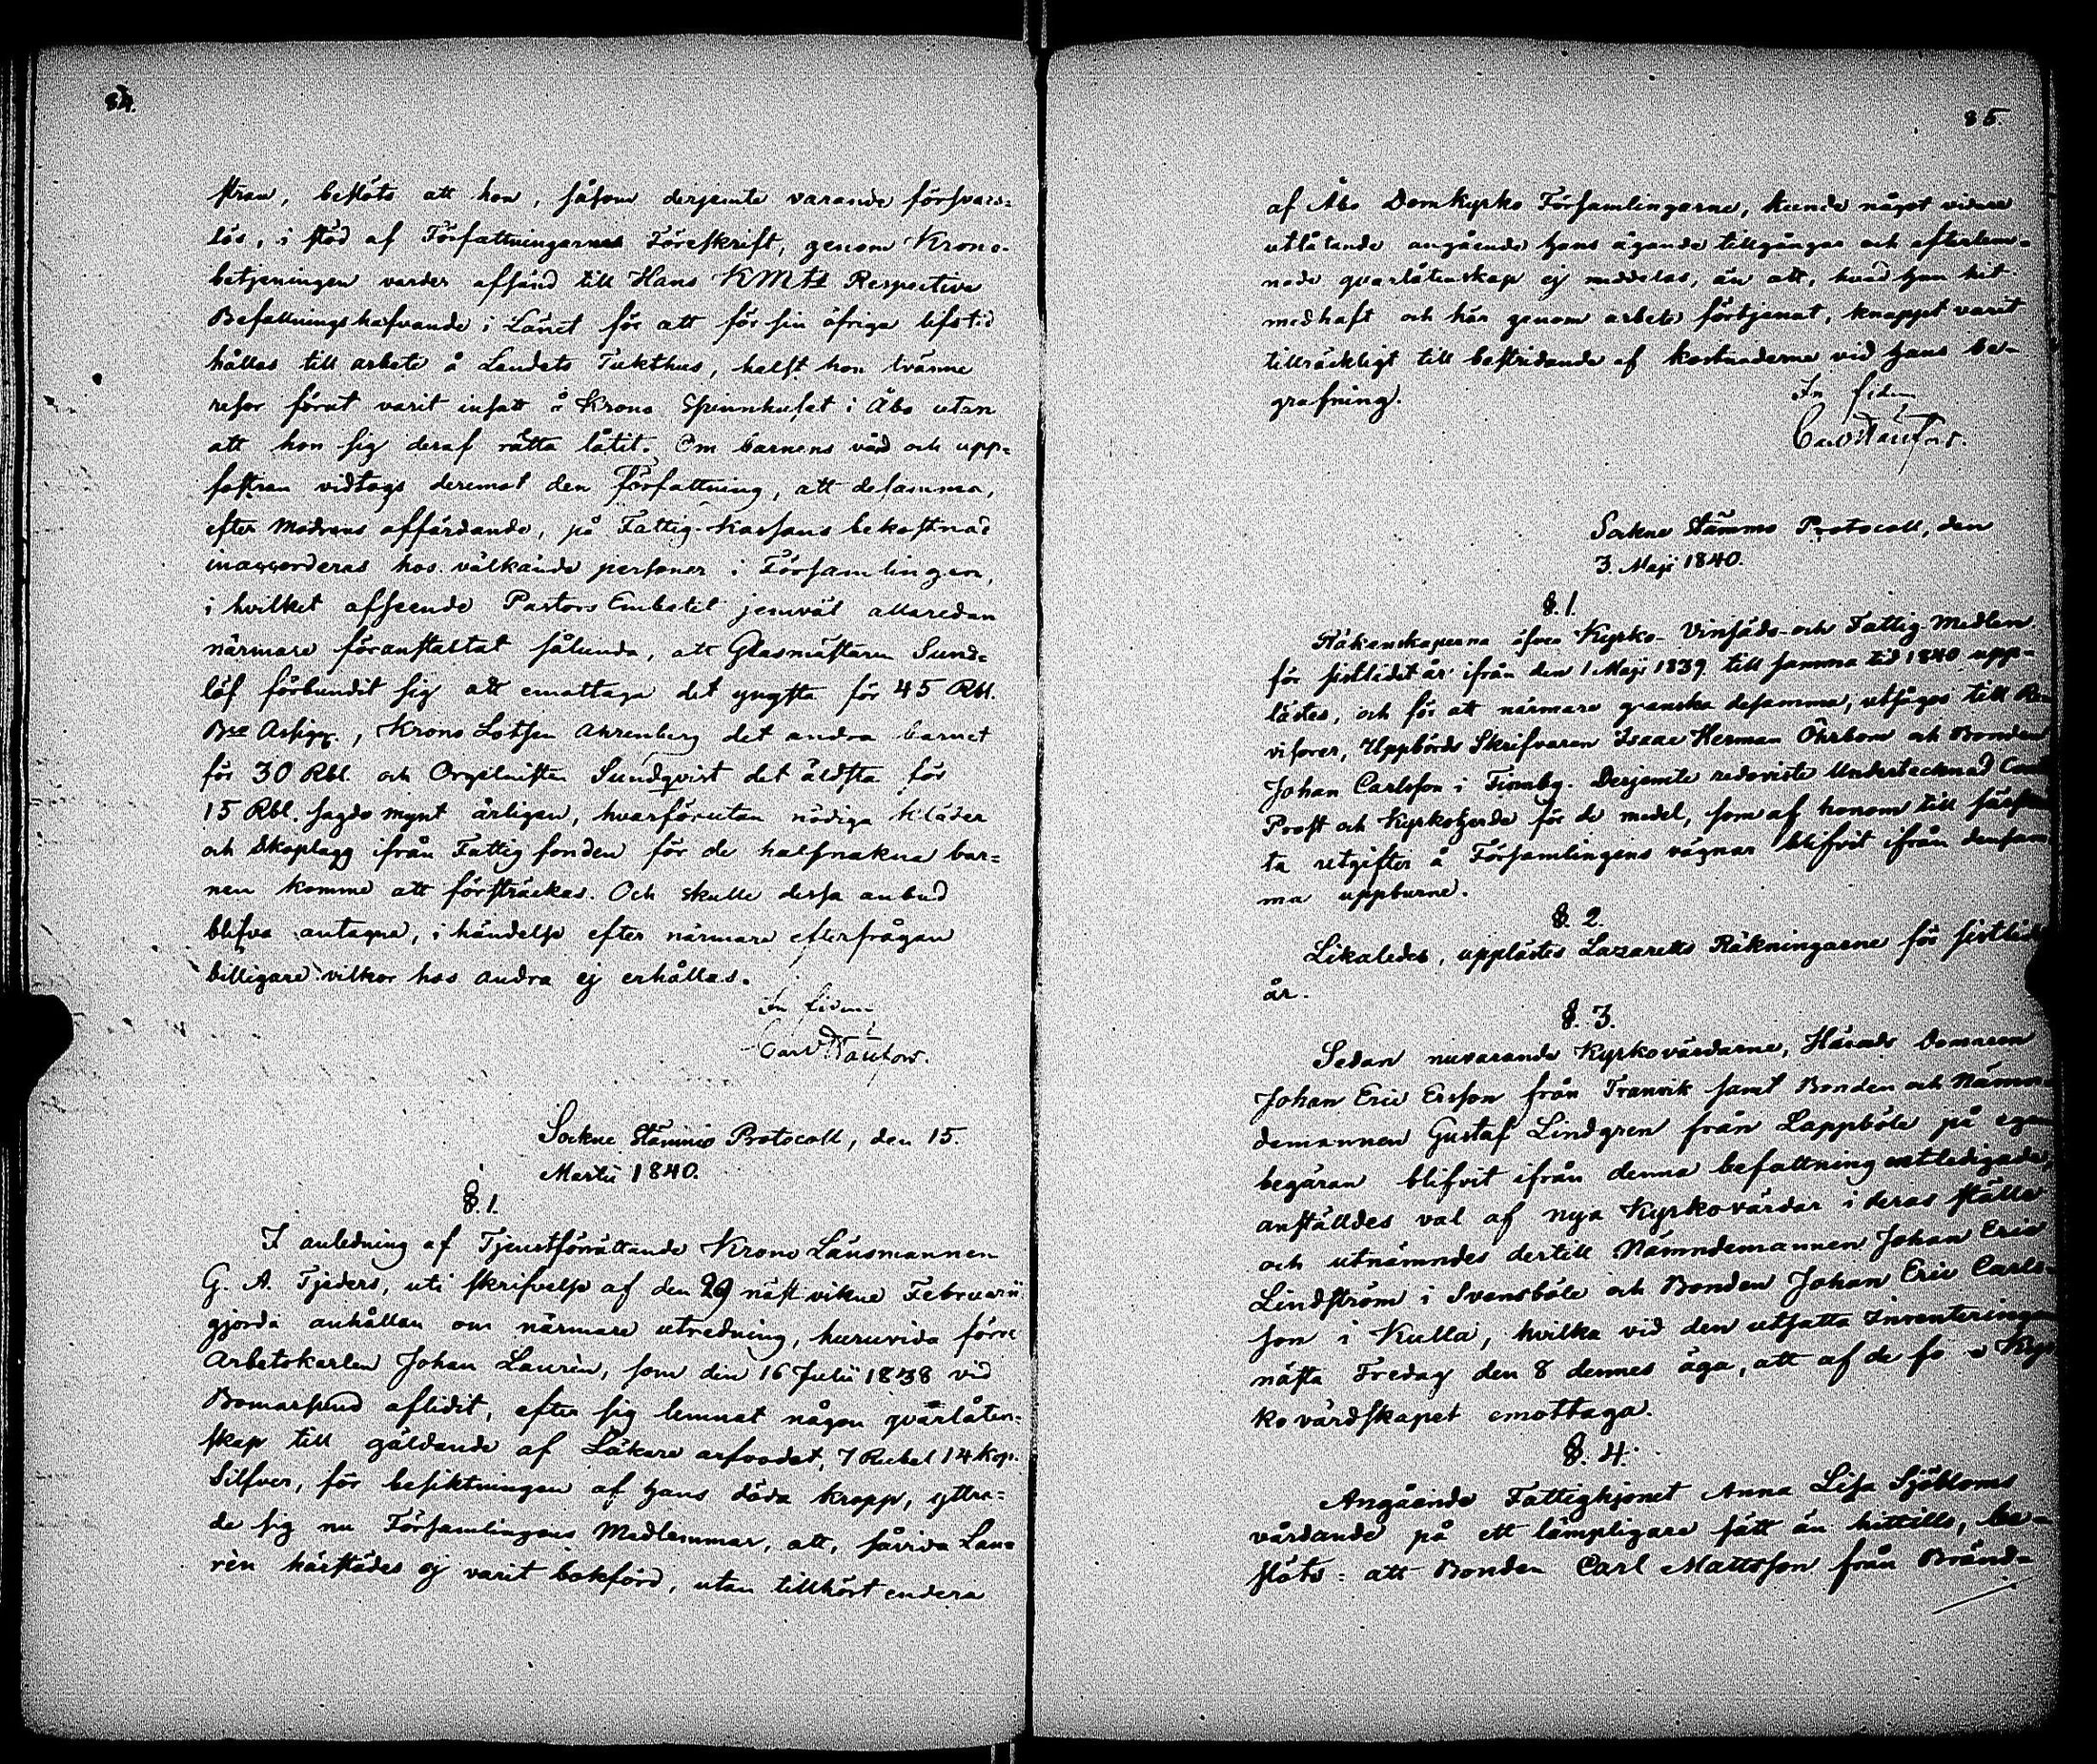 84.
stran, beslöts att hon, såsom derjemte varande försvars=
lös, i stöd af Författningarnes Föreskrift, genom Krono-
betjeningen varder afsänd till Hans KMts Respective
Befallningshafvande i Länet för att för sin öfriga lifstid
hållas till arbete å Landets Tukthus, helst hon tvänne
resor förut varit insatt å Krono Spinnhuset i Åbo utan
att hon sig deraf rätta låtit. Om barnens vård och upp=
fostran vidtogs deremot den författning, att desamma,
efter modrens affärdande, på Fattig-Kassans bekostnad
inaccorderas hos välkände personer i Församlingen,
i hvilket afseende Pastors Embetet jemväl allaredan
närmare föranstaltat sålunda, att Glasmästaren Sund=
löf förbundit sig att emottaga det yngsta för 45 Rbl.
Bco Assign., Krono Lotsen Ahrenberg det andra barnet
för 30 Rbl och Orgelnisten Sundqvist det äldsta för
15 Rbl. sagde mynt årligen, hvarförutan nödiga kläder
och Skoplagg ifrån Fattigfonden för de halfnakna bar=
nen komme att försträckas. Och skulle dessa anbud
blifva antagna, i händelse efter närmare efterfrågan
billigare vilkor hos andra ej erhållas.
In fidem
Sockne Stämmo Protocoll, den 15.
Martii 1840.
§. 1.
I anledning af Tjenstförrättande Krono Länsmannen
G. A. Tjeders, uti skrifvelse af den 29 näst vikne Februarii
gjorda anhållan om närmare utredning, huruvida förre
Arbetskarlen Johan Laurèn, som den 16 Julii 1838 vid
Bomarsund aflidit, efter sig lemnat någon qvarlåten-
skap till gäldande af Läkare arfvodet, 7 Rubel 14 Kop.
Silfver, för besiktningen af hans döda kropp, yttra=
de sig nu Församlingens Medlemmar, att, såvida Lau=
rèn härstädes ej varit bokförd, utan tillhört endera
85.
af Åbo Domkyrko Församlingarne, kunde något vidare
utlåtande angående hans ägande tillgångar och efterlem=
nade qvarlåtenskap ej meddelas, än att, hvad han hit
medhaft och här genom arbete förtjenat, knappt varit
tillräckligt till bestridande af kostnaderne vid hans be-
grafning.
In fidem
Sockne Stämmo Protocoll, den
3. Maji 1840.
§. 1.
Räkenskaperna öfver Kyrko- Vinsäds- och Fattig Medlen
för sistledit år ifrån den 1 Maji 1839 till samma tid 1840 upp-
lästes, och för att närmare granska desamma, utsågos till Re-
visorer, Uppbörds Skrifvaren Isaac Herman Öhrbom och Bonden
Johan Carlsson i Finnby. Derjemte redoviste Undertecknad
Prost och Kyrkoherde för de medel, som af honom till särskil
ta utgifter å Församlingens vägnar blifvit ifrån densam
ma uppburne.
§. 2.
Likaledes, upplästes Lazaretts Räkningarne för sistledit
år.
§. 3.
Sedan nuvarande Kyrkovärdarne, Härads Domaren
Johan Eric Ersson från Tranvik samt Bonden och Nämn-
demannen Gustaf Lindgren från Lappböle på egen
begäran blifvit ifrån denna befattning entledigade,
anställdes val af nya Kyrkovärdar i deras ställe
och utnämndes dertill Nämndemannen Johan Eric
Lindström i Svensböle och Bonden Johan Eric Carls-
son i Kulla, hvilka vid den utsatta Inventeringen
nästa Fredag den 8 dennes äga, att af de förre Kyr
kovärdskapet emottaga.
§. 4.
Angående Fattighjonet Anna Lisa Sjöbloms
vårdande på ett lämpligare sätt än hittills, be-
slöts: att Bonden Carl Mattsson från Bränd-